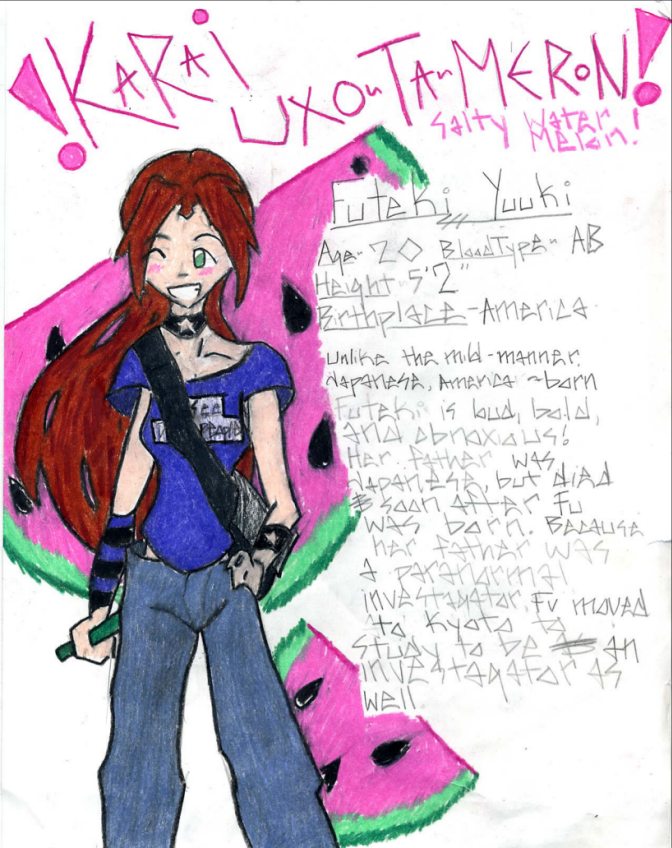 !KARAI
UXO-TA-MERON!
Salty Water
Melon!
Futeki Yuuki
Age- 20 BloodType- AB
Height- 5'2"
Birthplace-America
Unlike the mild-manner
Japanese, America-born
Futeki is loud, bold,
and obnoxious!
Her father was
Japanese, but died
soon after Fu
was born. Because
her father was
a paranormal
investagator, Fu moved
to Kyoto to
study to be an
investagator as
well.
I see
People